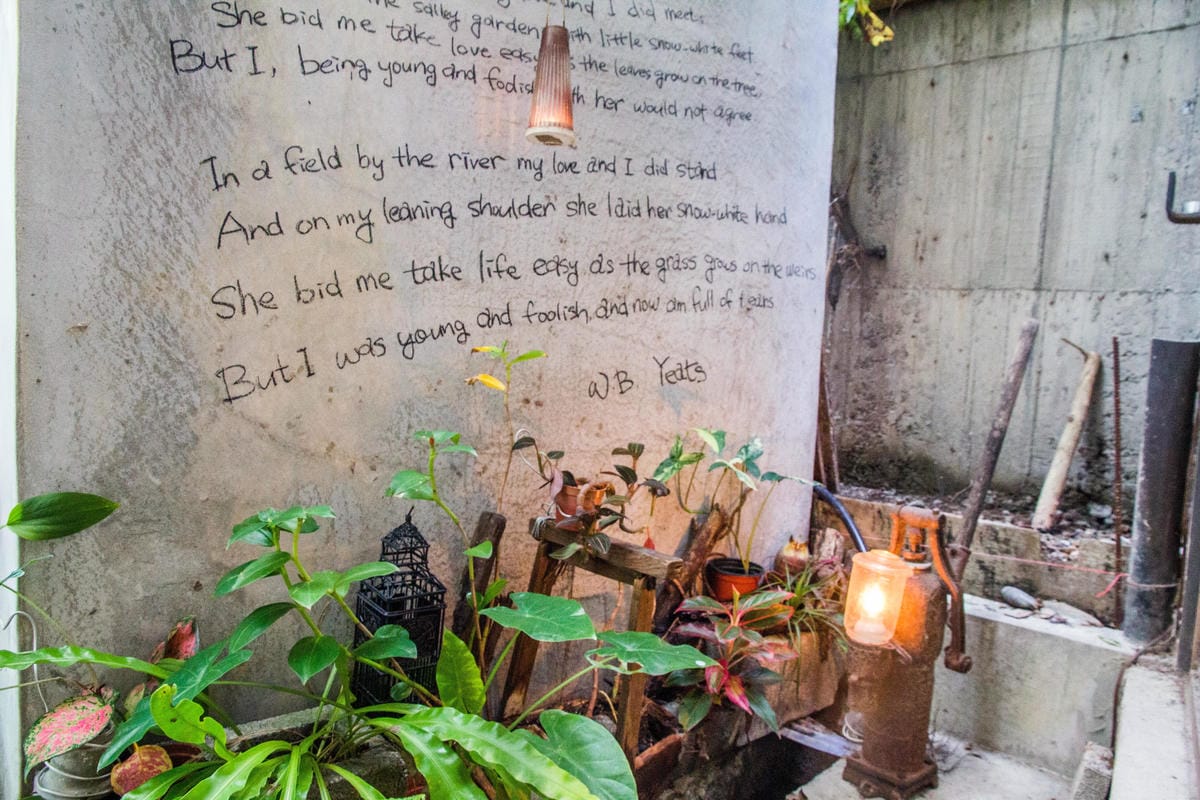 the salley garden and I did meet
She bid me take love easy as the leaves grow on the tree,
But I, being young and foolish with her would not agree
In a field by the river my love and I did stand
And on my leaning shoulder she laid her snow-white hand
She bid me take life easy as the grass grows on the weirs
But I was young and foolish, and now am full of tears
WB Yeats